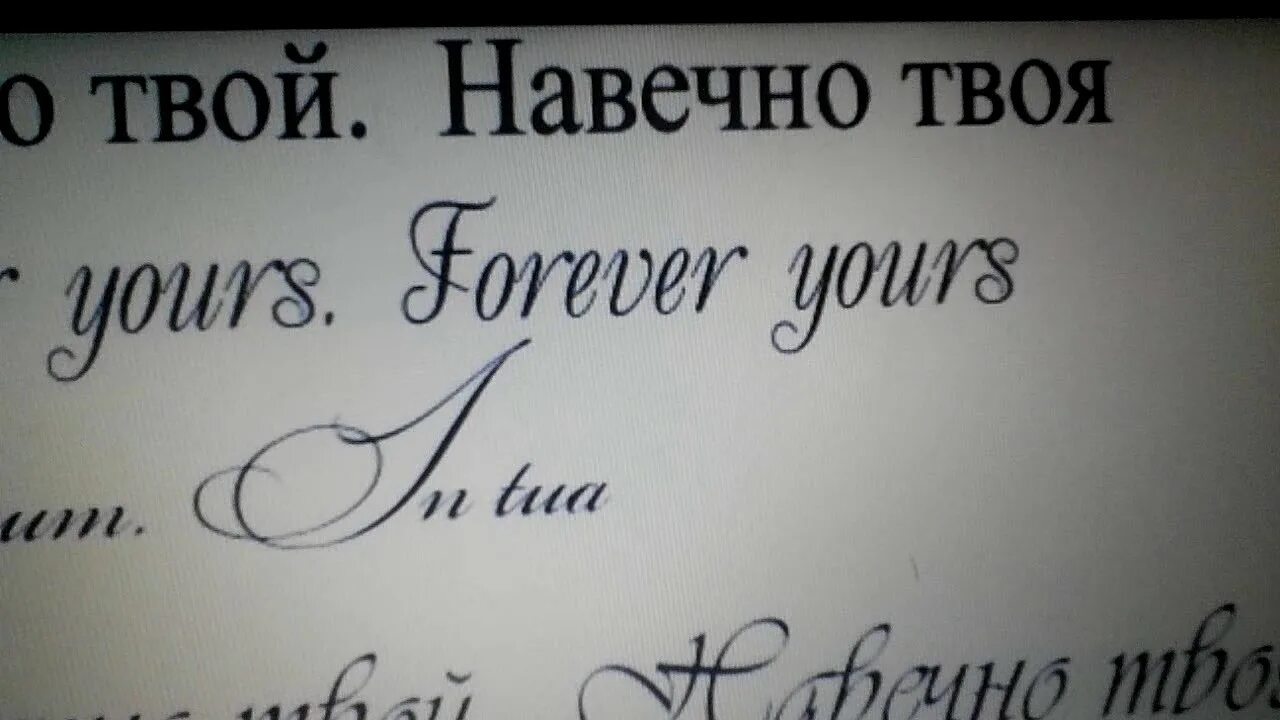 о твой. Навечно твоя
r yours. Forever yours
um. In tua
твой Навечно тво